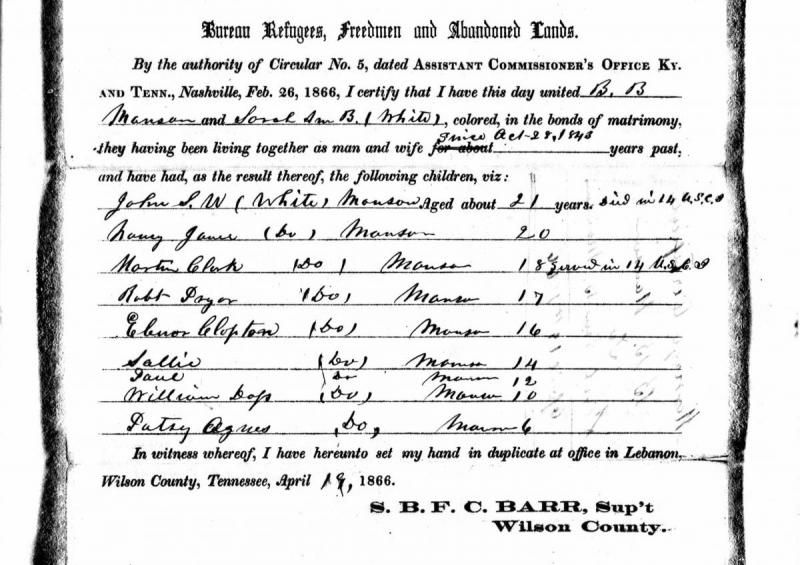 Bureau Refugees, Freedmen and Abandoned Lands.
By the authority of Circular No. 5, dated ASSISTANT COMMISSIONER'S OFFICE KY.
AND TENN., Nashville, Feb. 26, 1866, I certify that I have this day united B. B
Manson and Sarah Ann B. (White), colored, in the bonds of matrimony,
since Oct 28, 1843
they having been living together as man and wife for about years past,
and have had, as the result thereof, the following children, viz:
John S. W (White) Manson Aged about 21 years. Died in 14 U.S.C.I
Nancy Jane (Do) Manson 20
Martin Clark (Do) Manson 18 & served in 14 U.S.C.I
Robt Pryor (Do) Manson 17
Elenor Clopton (Do) Manson 16
Sallie (Do) Manson 14
Do Manson 12
William (Do) Manson 10
Patsey Agnes (Do) Manson 6
In witness whereof, I have hereunto set my hand in duplicate at office in Lebanon,
Wilson County, Tennessee, April 19, 1866.
S. B. F. C. BARR, Sup't
Wilson County.